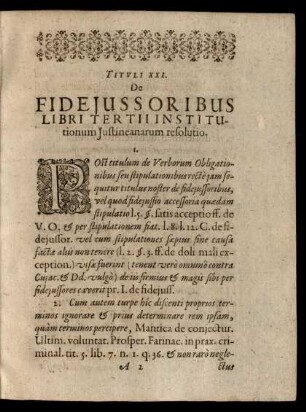 TITVLI XXI.
De
FIDEJUSSORIBUS
LIBRI TERTII INSTITU-
tionum Justineanarum resolutio.
1.
POst titulum de Verborum Obligatio-
nibus seu stipulationibus recte jam se-
quitur titulus noster de fidejussoribus,
vel quod fidejussio accessoria quædam
stipulatio l. 5. §. satis acceptio ff. de
V. O. & per stipulationem fiat. l. 8. l. 12. C. de fi-
dejussor. vel cum stipulationes sæpius sine causa
factæ aliis non tenere (l. 2. §. 3. ff. de doli mali ex-
ception.) visæ fuerint (teneat vero omnino contra
Cujac. & Dd. vulgò) eas firmius & magis sibi per
fidejussores caverit pr. I. de fidejuss.
2. Cum autem turpe hîc discenti proprios ter-
minos ignorare & prius determinare rem ipsam,
quàm terminos percipere, Mantica de conjectur.
Ultim. voluntat. Prosper. Farinac. in prax. cri-
minal. tit. 5. lib. 7. n. 1. q. 36. & non rarò negle-
A 2 ctus